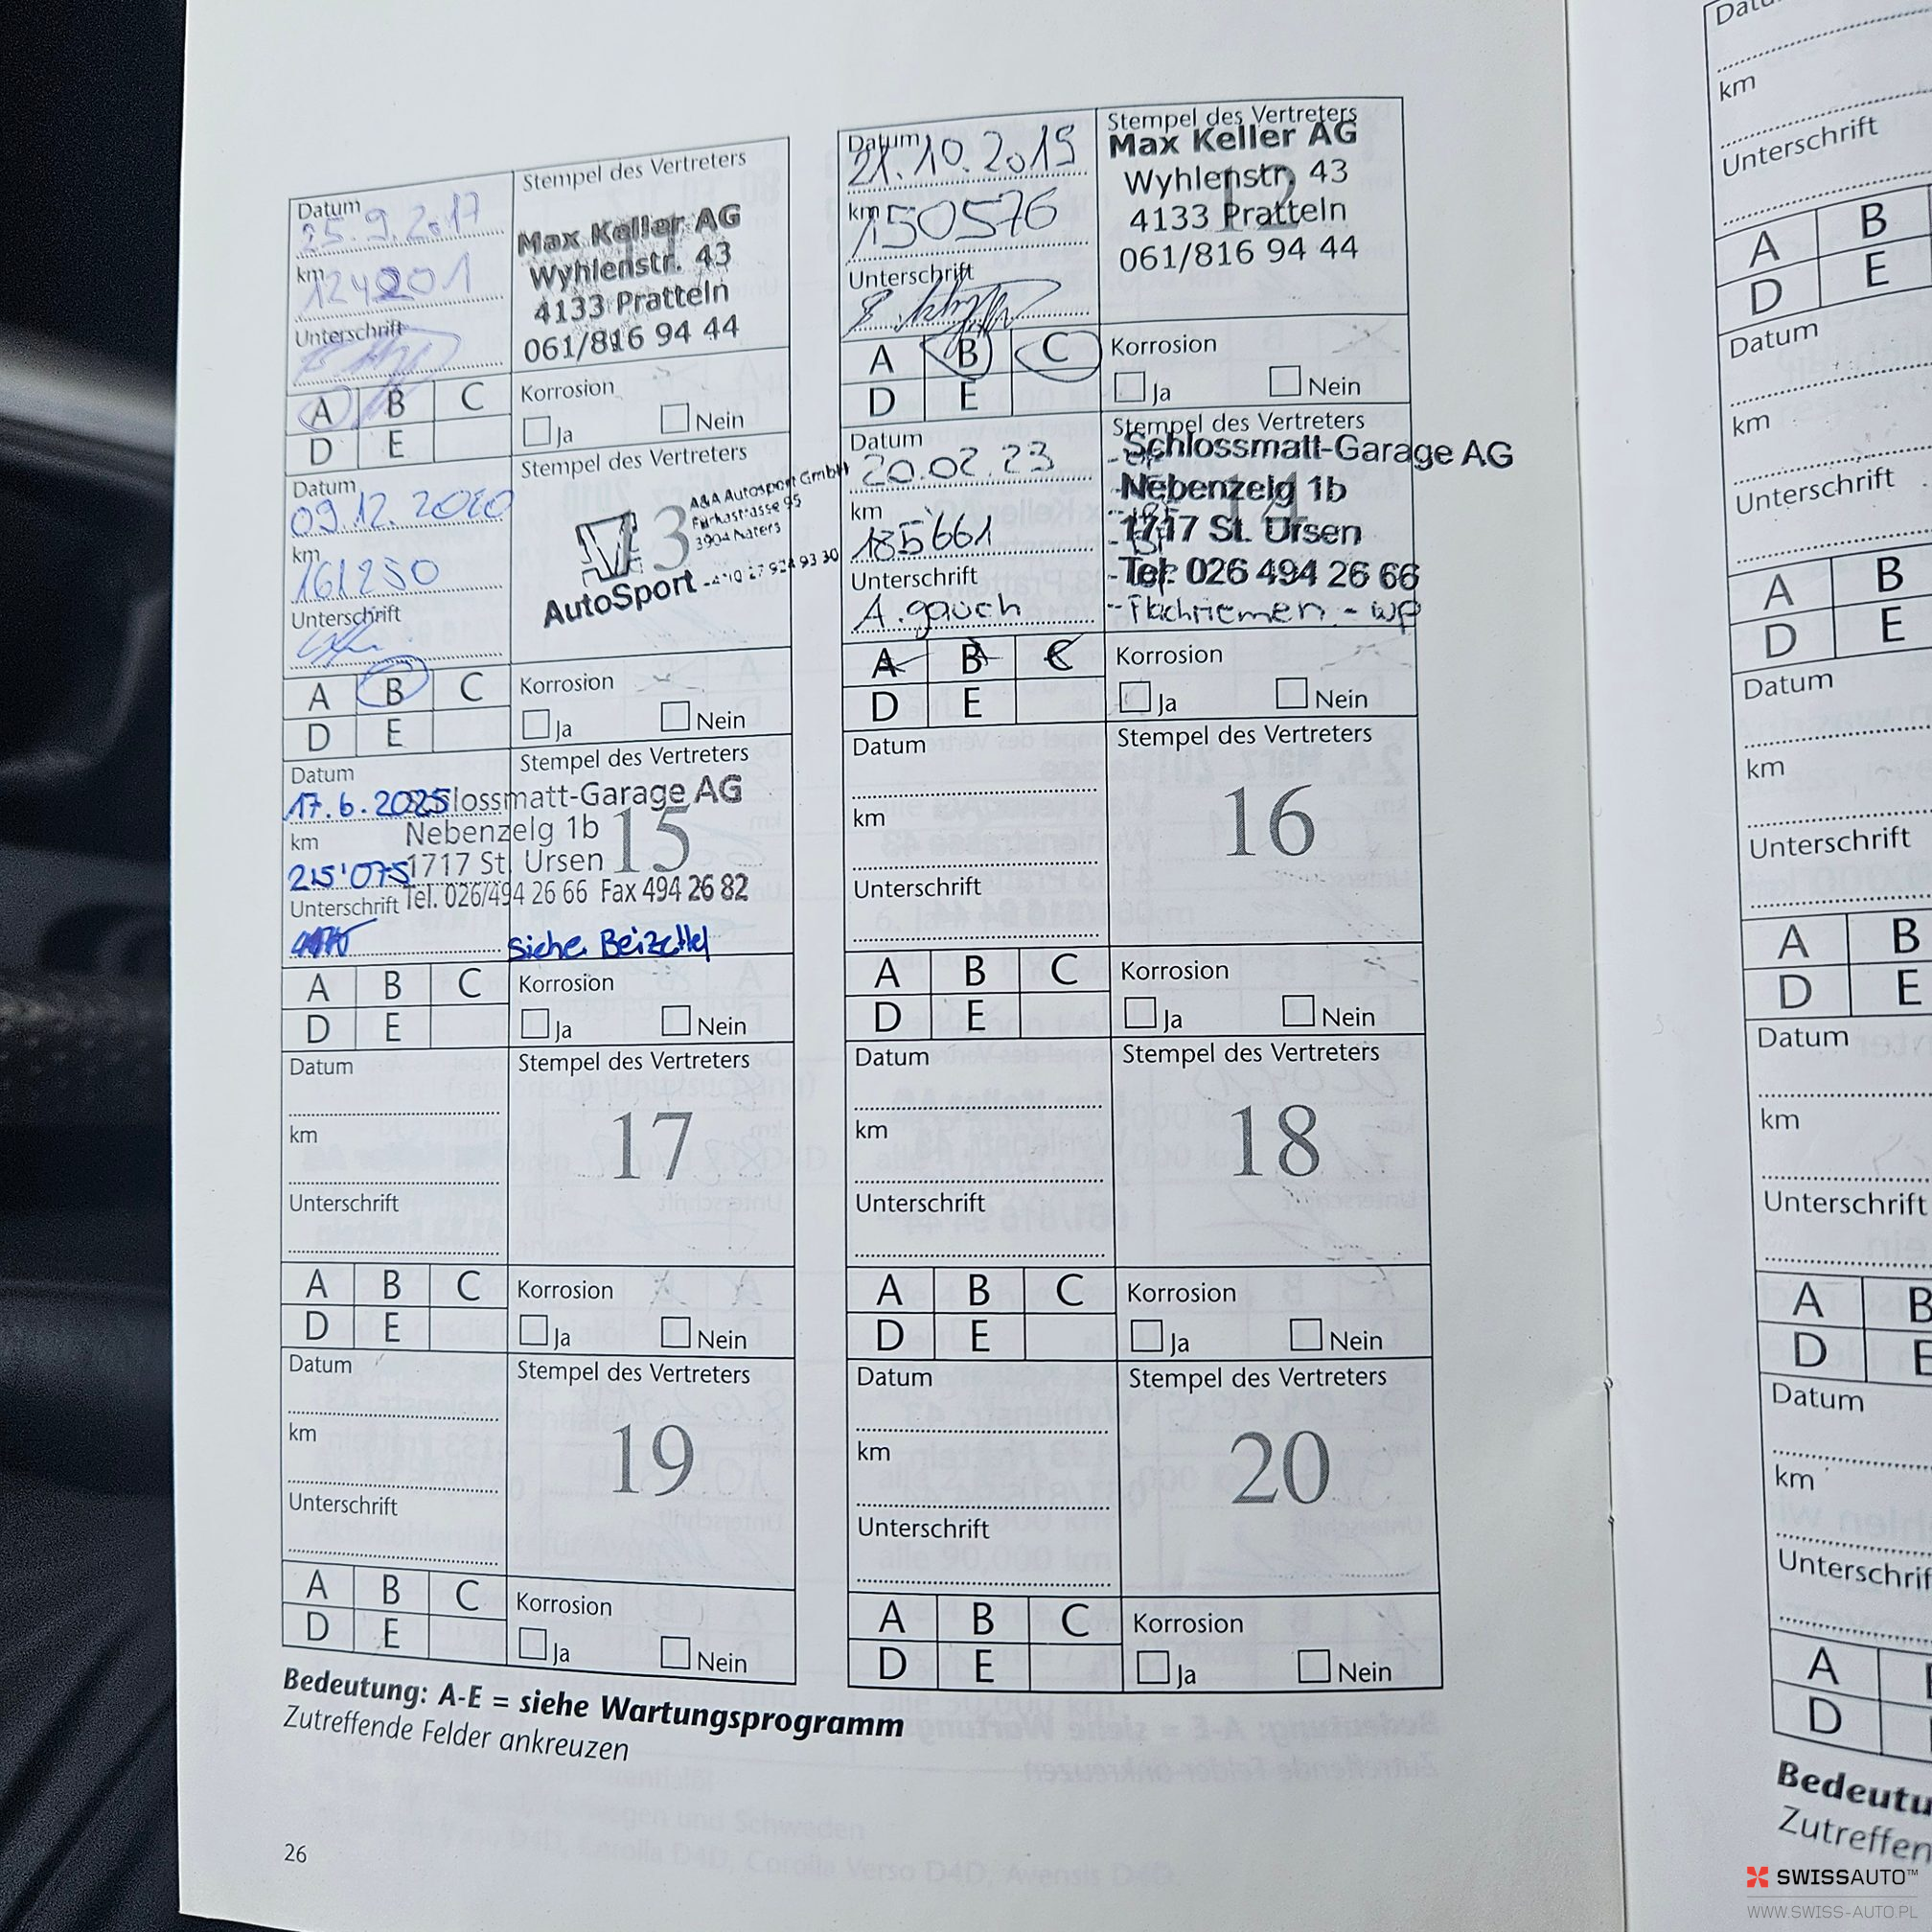 Datum
25.9.2017
km
124201
Unterschrift
Stempel des Vertreters
Max Keller AG
Wyhlenstr. 43
4133 Pratteln
061/816 94 44
A B C
D E
Korrosion
Ja Nein
Datum
21.10.2019
km
150576
Unterschrift
Stempel des Vertreters
12
Max Keller AG
Wyhlenstr. 43
4133 Pratteln
061/816 94 44
A B C
D E
Korrosion
Ja Nein
Datum
09.12.2020
km
161250
Unterschrift
Stempel des Vertreters
13
A&A Autosport GmbH
Furkastrasse 95
3904 Naters
AutoSport
A B C
D E
Korrosion
Ja Nein
Datum
20.02.23
km
185'661
Unterschrift
A. gauch
Stempel des Vertreters
14
Schlossmatt-Garage AG
Nebenzelg 1b
1717 St. Ursen
Tel. 026 494 26 66
- Flachriemen - WP
A B C
D E
Korrosion
Ja Nein
Datum
17.6.2025
km
215'075
Unterschrift
Stempel des Vertreters
15
Schlossmatt-Garage AG
Nebenzelg 1b
1717 St. Ursen
Tel. 026/494 26 66 Fax 494 26 82
siehe Beizettel
A B C
D E
Korrosion
Ja Nein
Datum
km
Unterschrift
Stempel des Vertreters
16
A B C
D E
Korrosion
Ja Nein
Datum
km
Unterschrift
Stempel des Vertreters
17
A B C
D E
Korrosion
Ja Nein
Datum
km
Unterschrift
Stempel des Vertreters
18
A B C
D E
Korrosion
Ja Nein
Datum
km
Unterschrift
Stempel des Vertreters
19
A B C
D E
Korrosion
Ja Nein
Datum
km
Unterschrift
Stempel des Vertreters
20
A B C
D E
Korrosion
Ja Nein
Bedeutung: A-E = siehe Wartungsprogramm
Zutreffende Felder ankreuzen
26
km
Unterschrift
A B
D E
Datum
km
Unterschrift
A B
D E
Datum
km
Unterschrift
A B
D E
Datum
km
Unterschrift
A B
D E
Datum
km
A
D
SWISSAUTO™
WWW.SWISS-AUTO.PL